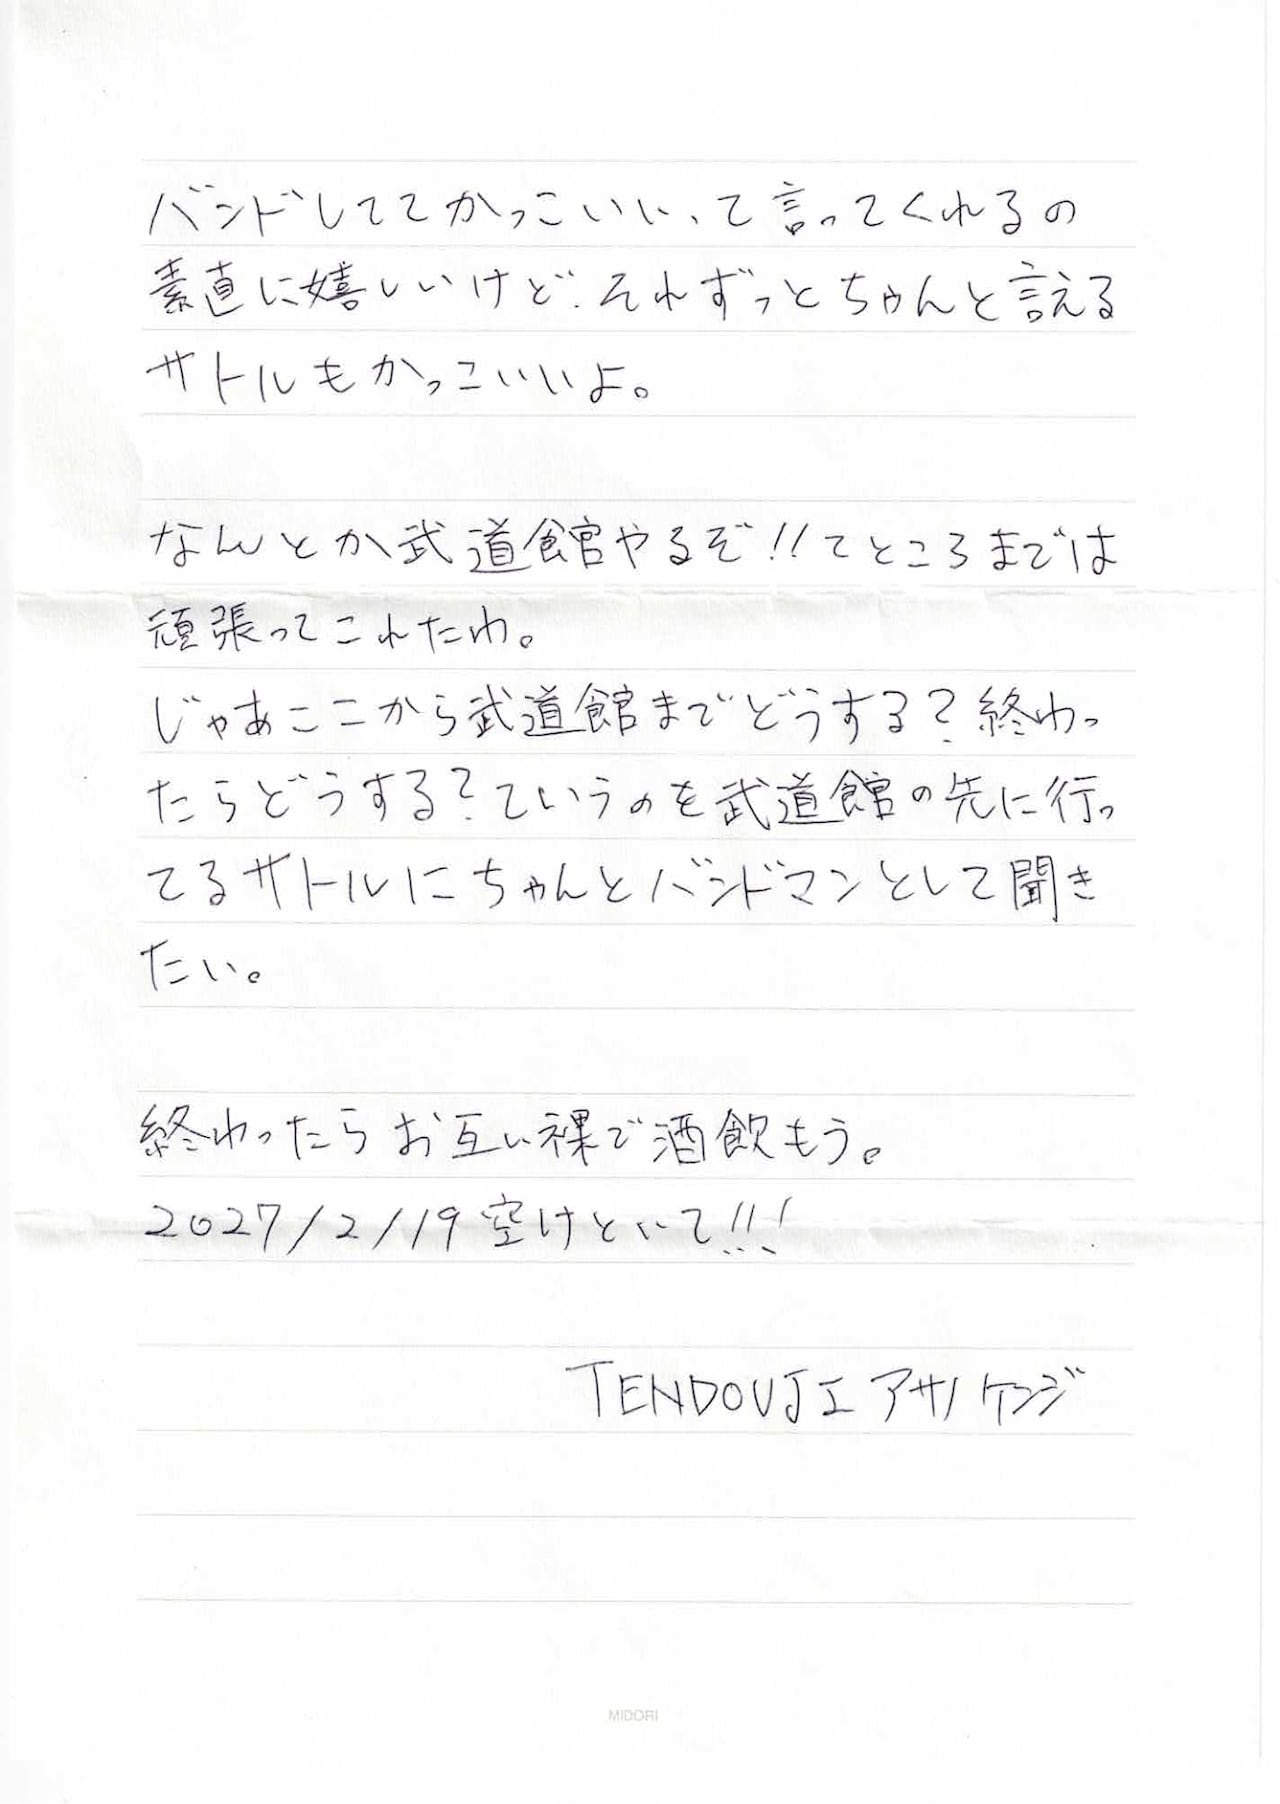 バンドしててかっこいい、て言ってくれるの
素直に嬉しいけど、それずっとちゃんと言える
サトルもかっこいいよ。
なんとか武道館やるぞ!!てところまでは
頑張ってこれたわ。
じゃあここから武道館までどうする?終わっ
たらどうする?ていうのを武道館の先に行っ
てるサトルにちゃんとバンドマンとして聞き
たい。
終わったらお互い裸で酒飲もう。
2027/2/19空けといて!!!
TENDOUJI アサノケンジ
MIDORI